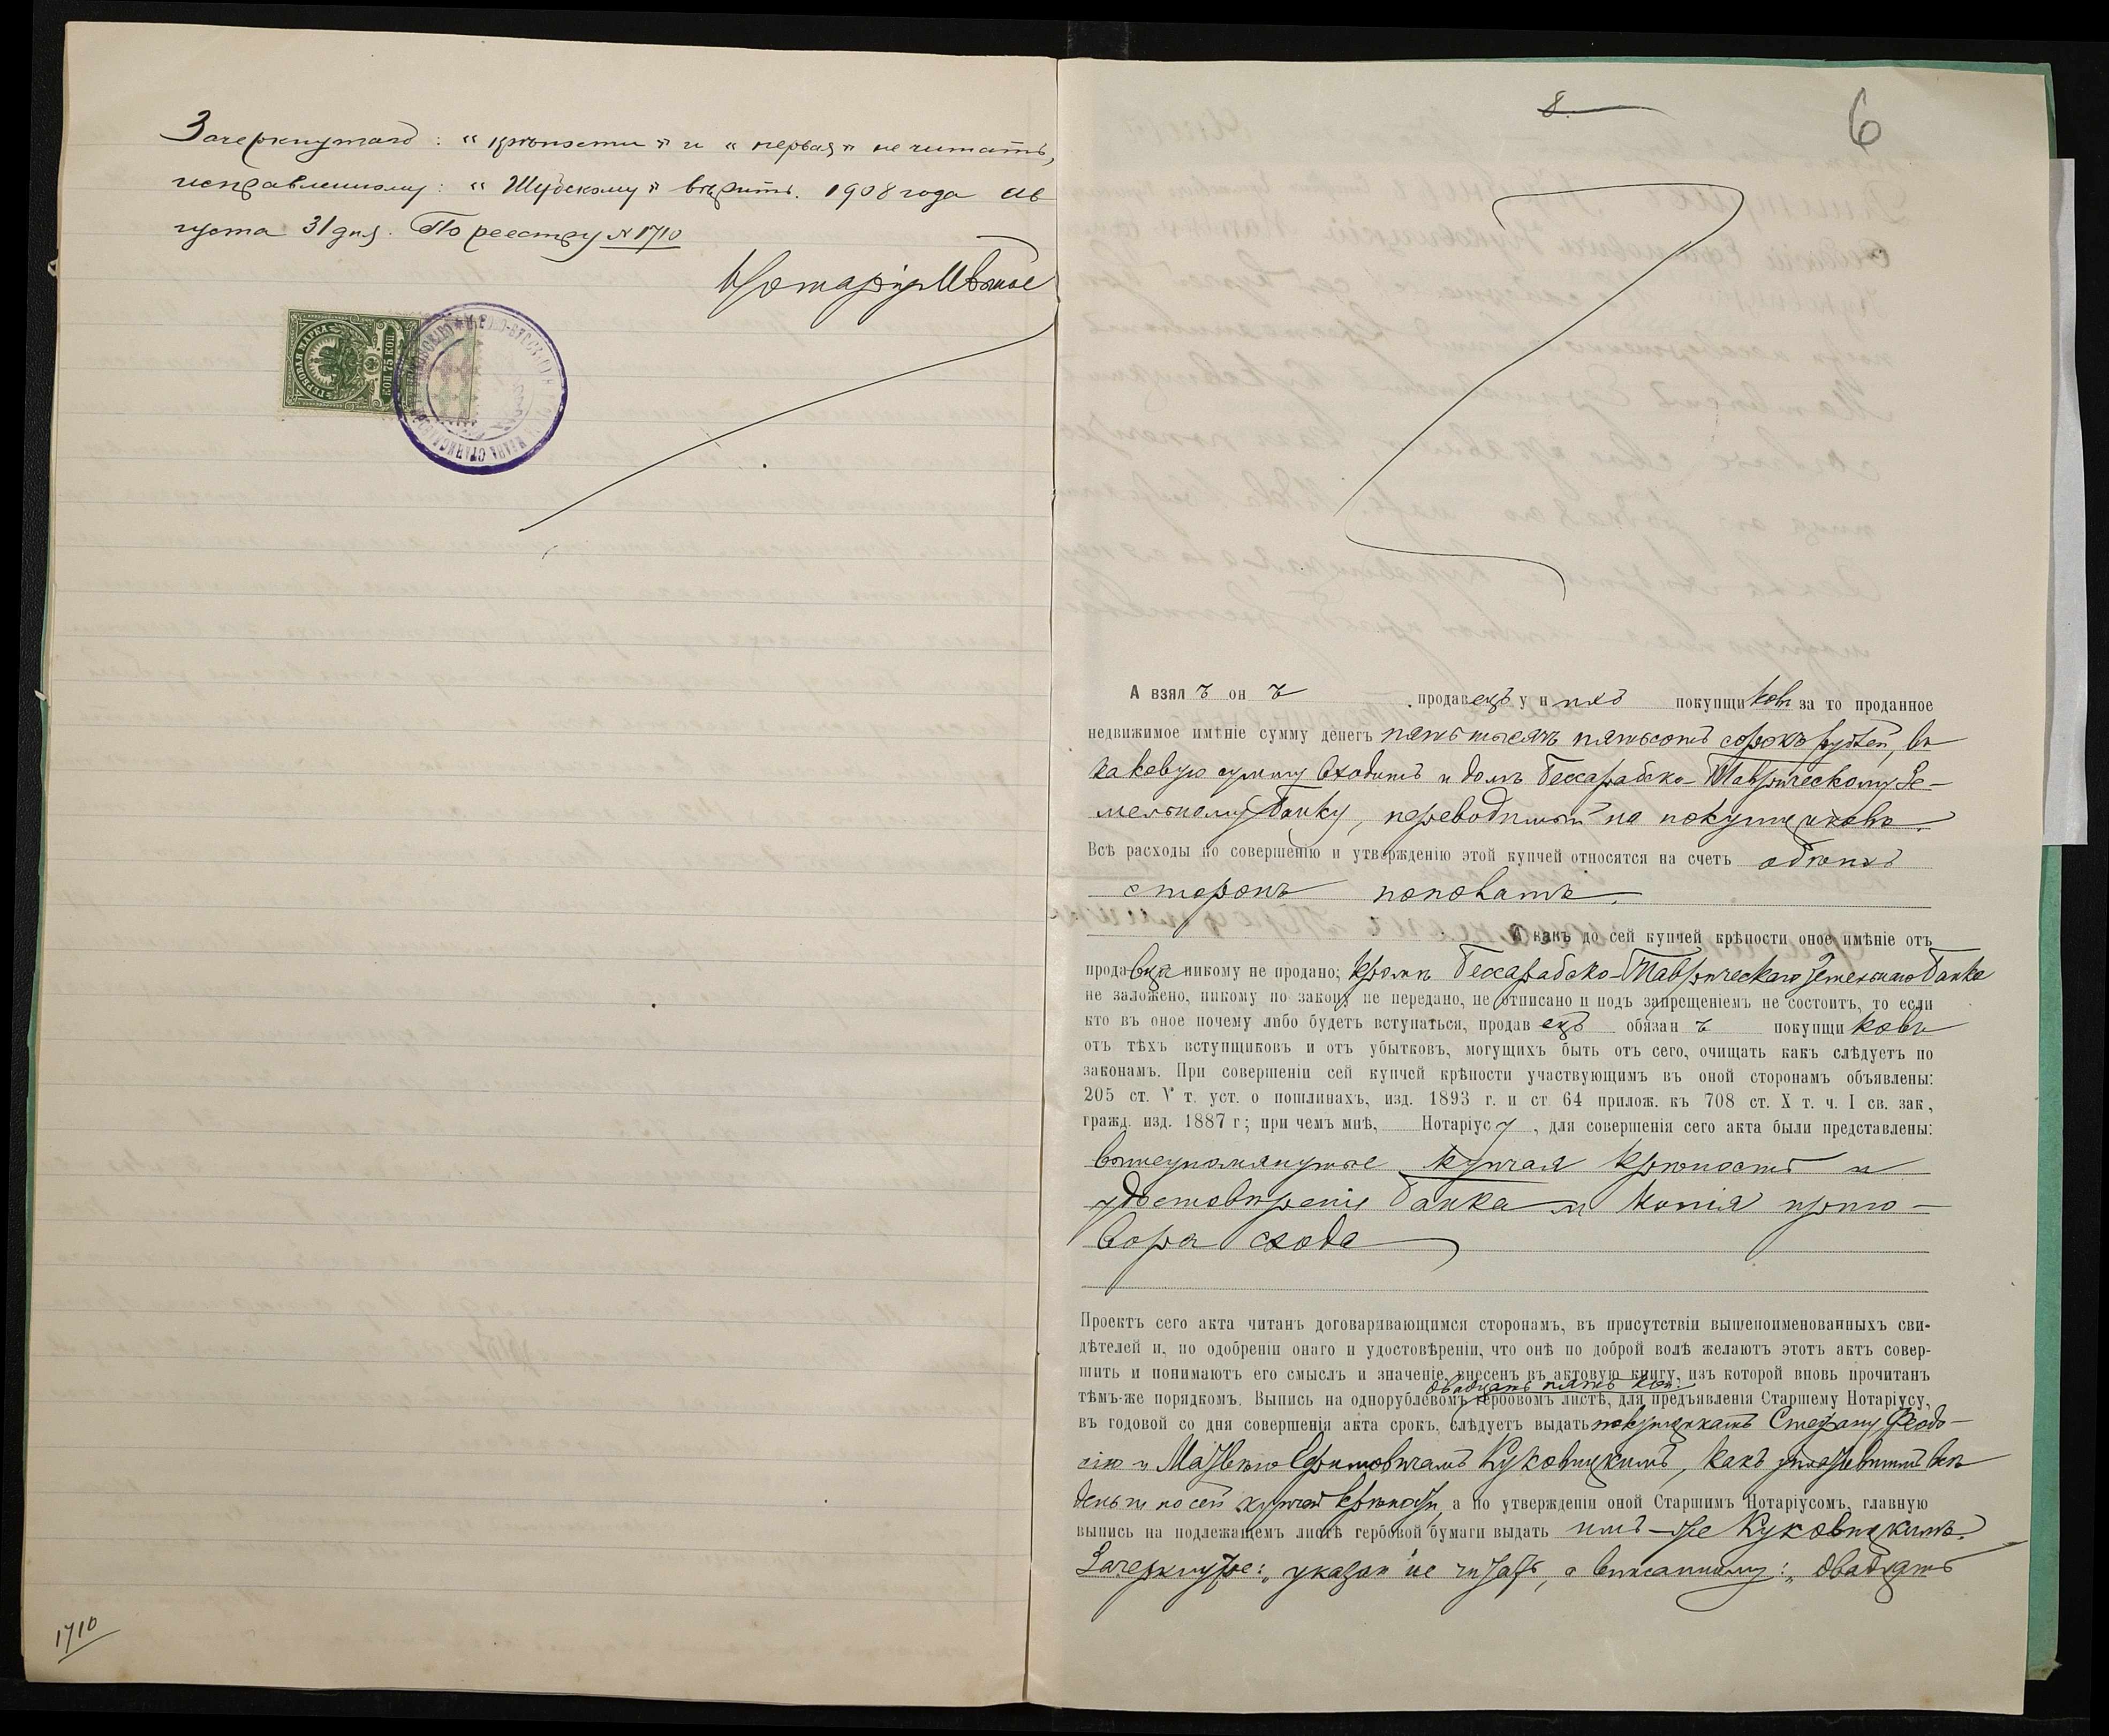 Зачеркнутаго: „крѣпости“ и „первая“ не читать,
исправленному: „Шубскому“ вѣрить. 1908 года Ав
густа 31 дня. По реестру № 1710
Нотаріусъ
ГЕРБОВАЯ МАРКА
75 КОП
1710
8.
6
А взялъ онъ продавецъ у нихъ покупщиковъ за то проданное
недвижимое имѣніе сумму денегъ пять тысячъ пятьсотъ сорокъ рублей, въ
каковую сумму входитъ и долгъ Бессарабско-Таврическому Зе-
мельному Банку, переводимый на покупщиковъ.
Всѣ расходы по совершенію и утвержденію этой купчей относятся на счетъ обѣихъ
сторонъ пополамъ.
А какъ до сей купчей крѣпости оное имѣніе отъ
продавца никому не продано; кромѣ Бессарабско-Таврическаго Земельнаго Банка
не заложено, никому по закону не передано, не отписано и подъ запрещеніемъ не состоитъ, то если
кто въ оное почему либо будетъ вступаться, продавецъ обязанъ покупщиковъ
отъ тѣхъ вступщиковъ и отъ убытковъ, могущихъ быть отъ сего, очищать какъ слѣдуетъ по
законамъ. При совершеніи сей купчей крѣпости участвующимъ въ оной сторонамъ объявлены:
205 ст. V т. уст. о пошлинахъ, изд. 1893 г. и ст 64 прилож. къ 708 ст. X т. ч. I св. зак,
гражд. изд. 1887 г; при чемъ мнѣ, Нотаріусу, для совершенія сего акта были представлены:
вышеупомянутые купчая крѣпость и
удостовѣреніе Банка и копія приго-
вора схода
Проектъ сего акта читанъ договаривающимся сторонамъ, въ присутствіи вышепоименованныхъ сви-
дѣтелей и, по одобреніи онаго и удостовѣреніи, что онѣ по доброй волѣ желаютъ этотъ актъ совер-
шить и понимаютъ его смыслъ и значеніе, внесенъ въ актовую книгу, изъ которой вновь прочитанъ
двадцать пять коп.
тѣмъ-же порядкомъ. Выпись на однорублевомъ гербовомъ листѣ, для предъявленія Старшему Нотаріусу,
въ годовой со дня совершенія акта срокъ, слѣдуетъ выдать покупщикамъ Стефану Феодо-
сію и Матвѣю Ефимовичамъ Куковицкимъ, какъ уплатившимъ всѣ
деньги по сей купчей крѣпости, а по утвержденіи оной Старшимъ Нотаріусомъ, главную
выпись на подлежащемъ листѣ гербовой бумаги выдать имъ-же Куковицкимъ.
Зачеркнутое: „указан не читать, а вписанному: „двадцать